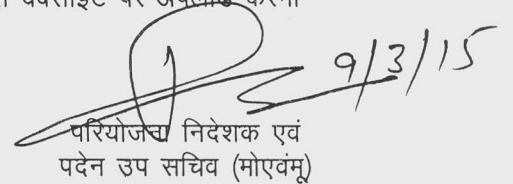 वेबसाईट पर अपलोड करना
9/3/15
परियोजना निदेशक एवं
पदेन उप सचिव (मोएवंमू)